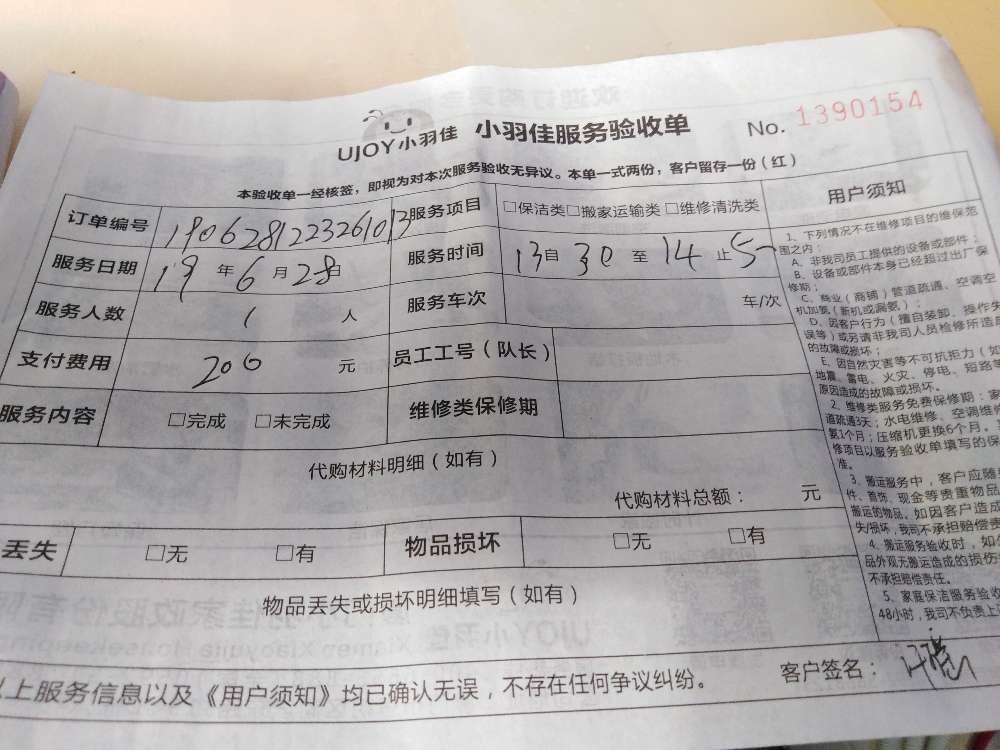 UJOY小羽佳 小羽佳服务验收单 No. 1390154
本验收单一经核签，即视为对本次服务验收无异议。本单一式两份，客户留存一份（红）
订单编号 1906281223261013 服务项目 □保洁类□搬家运输类□维修清洗类
服务日期 19年6月28日 服务时间 13自30至14止5
服务人数 1 人 服务车次 车/次
支付费用 200 元 员工工号（队长）
服务内容 □完成 □未完成 维修类保修期
代购材料明细（如有）
代购材料总额： 元
丢失 □无 □有 物品损坏 □无 □有
物品丢失或损坏明细填写（如有）
上服务信息以及《用户须知》均已确认无误，不存在任何争议纠纷。 客户签名：
用户须知
1、下列情况不在维修项目的维保范
围之内：
A、非我司员工提供的设备或部件；
B、设备或部件本身已经超过出厂保
修期；
C、商业（商铺）管道疏通、空调空
机加氨（新机或漏氨）；
D、因客户行为（擅自装卸、操作失
误等）或另请非我司人员检修所造
的故障或损坏；
E、因自然灾害等不可抗拒力（如
地震、雷电、火灾、停电、短路
原因造成的故障或损坏。
2、维修类服务免费保修期：家
道疏通3天；水电维修、空调维
氨1个月；压缩机更换6个月。
修项目以服务验收单填写的保
准。
3、搬运服务中，客户应随
件、首饰、现金等贵重物品
搬运的物品。如因客户造成
失/损坏，我司不承担赔偿责
4、搬运服务验收时，如
品外观无搬运造成的损伤
不承担赔偿责任。
5、家庭保洁服务验收
48小时，我司不负责上